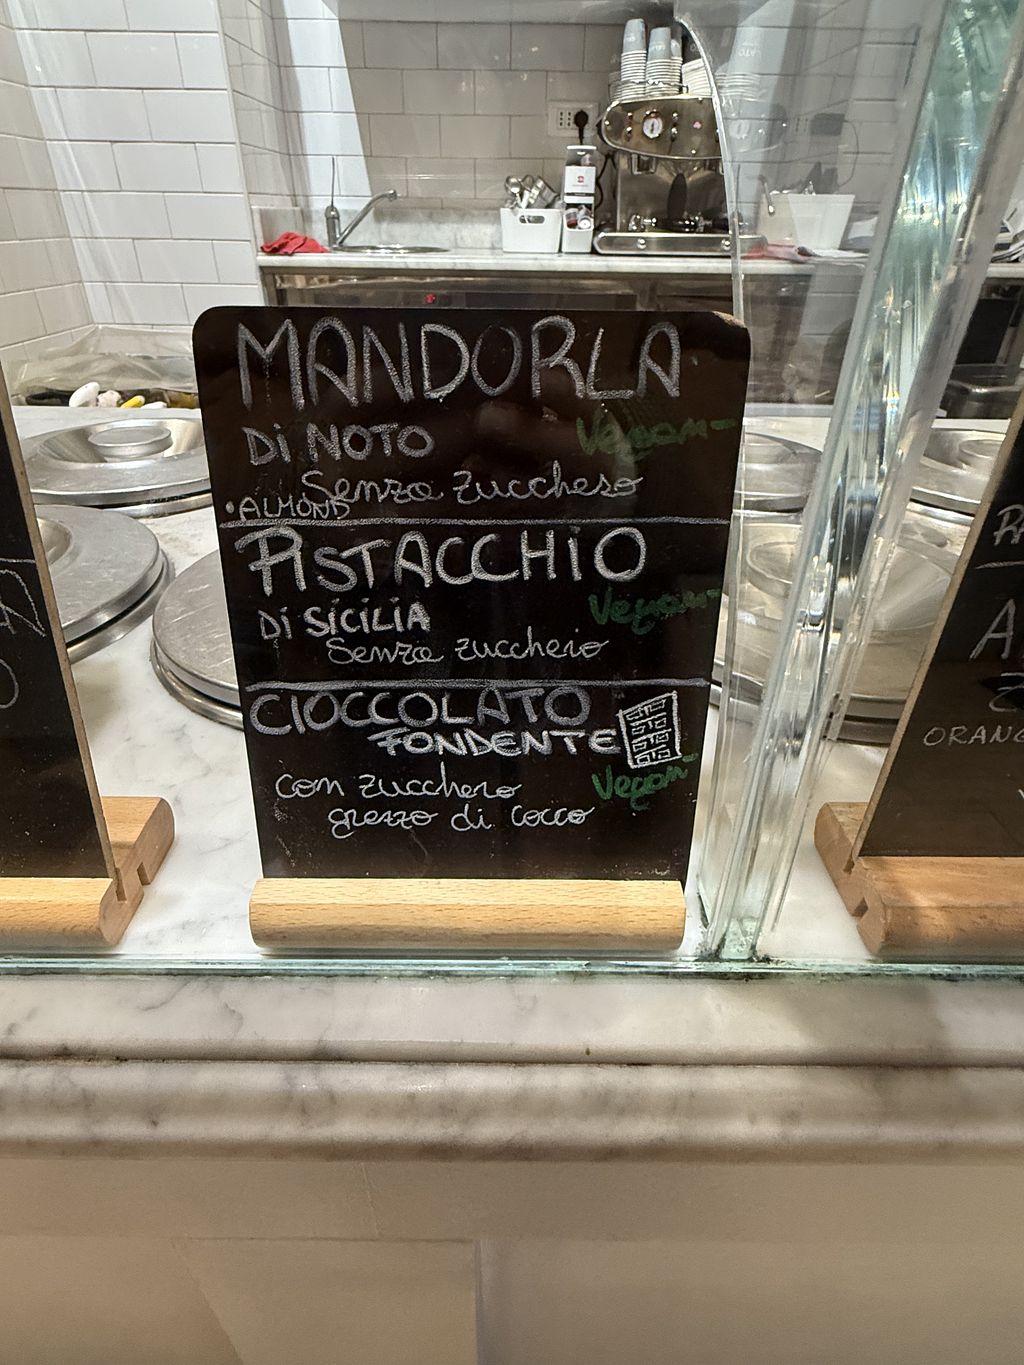 MANDORLA
Di NOTO
Vegan-
Senza zucchero
•ALMOND
PISTACCHIO
Di SiCiLiA
Vegan-
Senza zucchero
CIOCCOLATO
FONDENTE
Vegan-
con zucchero
grezzo di cocco
ORANG